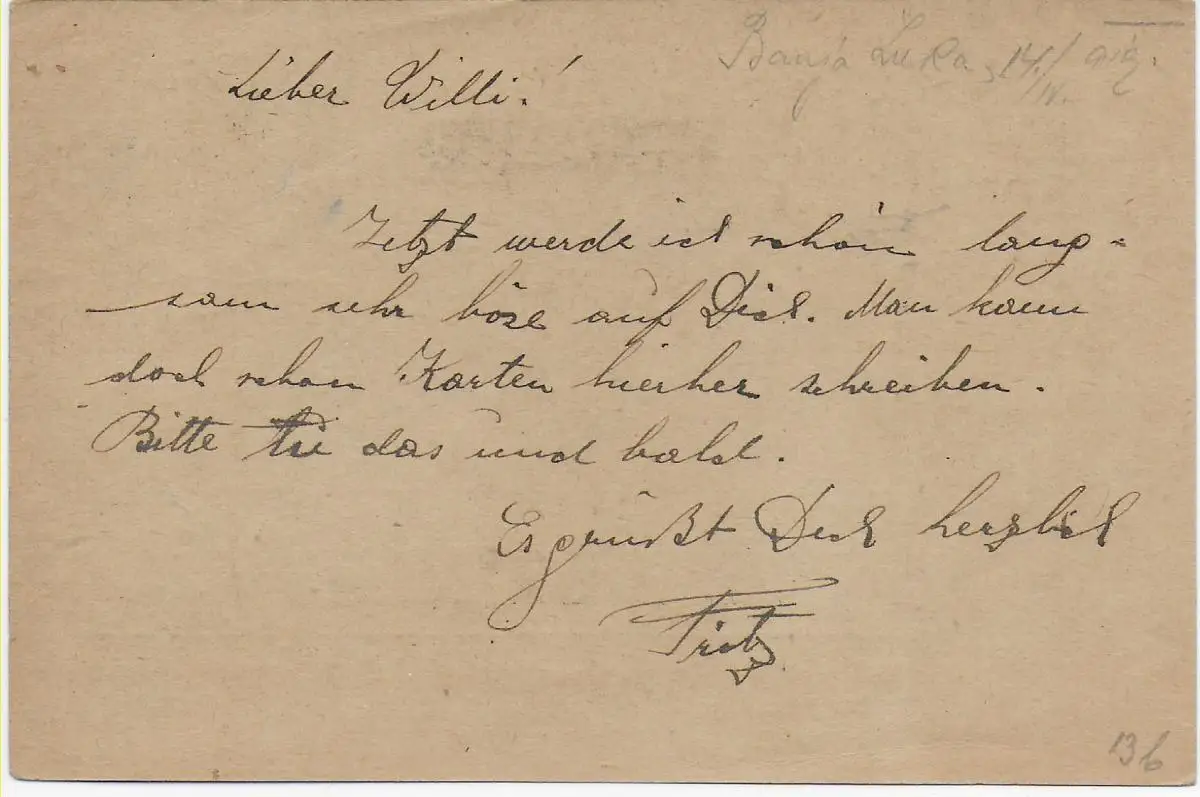 Banja Luka, 14./IV.
Lieber Willi!
Jetzt werde ich schon lang-
sam sehr böse auf Dich. Man kann
doch schon Karten hierher schreiben.
Bitte tue das und bald.
Es grüßt Dich herzlich
Fritz
13b